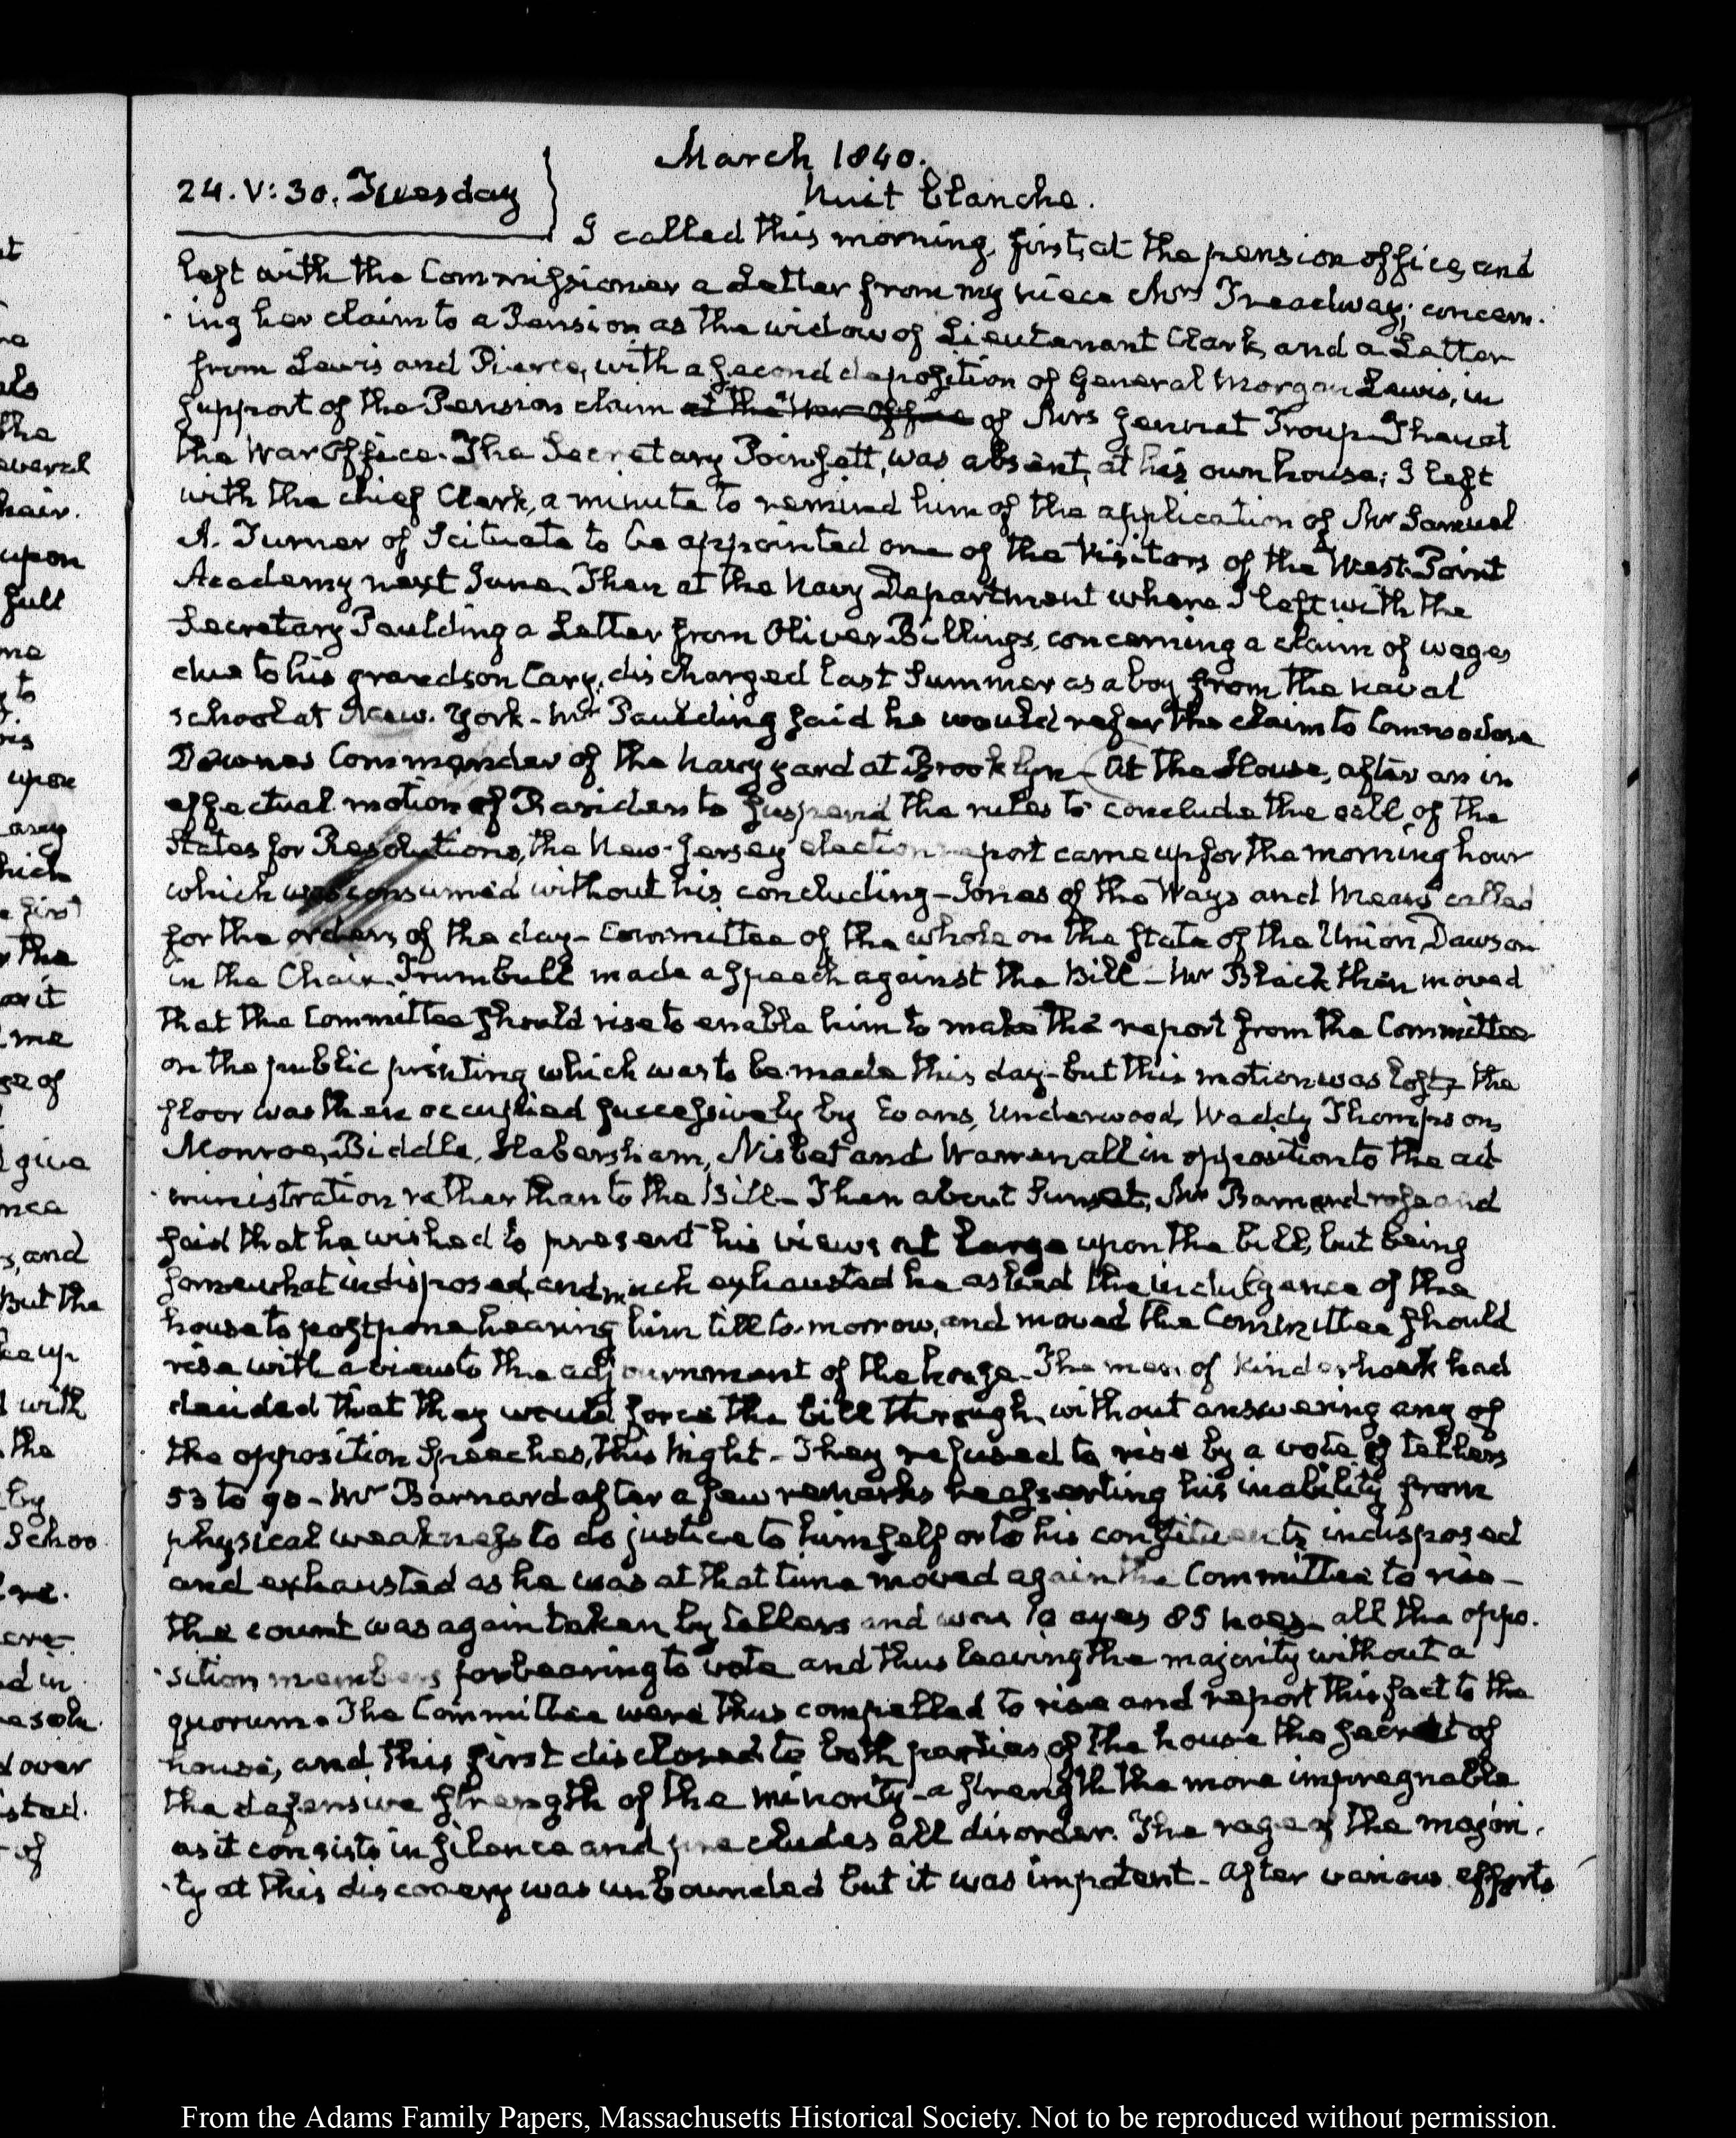 March 1840.
24. V:30. Tuesday
Nuit blanche.
I called this morning, first, at the pension office, and
left with the Commissioner a Letter from my niece Mrs Treadway; concern-
ing her claim to a Pension as the widow of Lieutenant Clark, and a Letter
from Lewis and Pierce, with a second deposition of General Morgan Lewis, in
support of the Pension claim at the War Office of Mrs General Troup. Then at
the War Office. The Secretary Poinsett, was absent, at his own house; I left
with the chief Clerk, a minute to remind him of the application of Mr Samuel
A. Turner of Scituate to be appointed one of the Visitors of the West-Point
Academy next June. Then at the Navy Department where I left with the
Secretary Paulding a Letter from Oliver Billings, concerning a claim of wages
due to his grandson Cary, discharged last Summer as a boy from the naval
school at New-York - Mr Paulding said he would refer the claim to Commodore
Downes Commander of the Navy yard at Brooklyn - At the House, after an in
effectual motion of Pariden to suspend the rules to conclude the call of the
States for Resolutions, the New-Jersey election report came up for the morning hour
which was consumed without his concluding - Jones of the Ways and Means called
for the orders of the day - Committee of the whole on the state of the Union, Dawson
in the Chair. Trumbull made a speech against the Bill - Mr Black then moved
that the Committee should rise to enable him to make the report from the Committee
on the public printing which was to be made this day - but this motion was lost, the
floor was then occupied successively by Evans, Underwood, Waddy Thompson,
Monroe, Biddle, Habersham, Nisbet and Warren all in opposition to the ad
ministration rather than to the Bill - Then about Sunset, Mr Barnard rose and
said that he wished to present his views at large upon the bill, but being
somewhat indisposed, and much exhausted he asked the indulgence of the
house to postpone hearing him till to-morrow, and moved the Committee should
rise with a view to the adjournment of the house - The men of Kinderhook had
decided that they would force the bill through, without answering any of
the opposition Speeches, this Night - They refused to rise by a vote of tellers
53 to 90 - Mr Barnard after a few remarks reasserting his inability from
physical weakness to do justice to himself or to his constituents, indisposed
and exhausted as he was at that time moved again the Committee to rise -
the count was again taken by tellers and was 10 ayes 85 noes - all the oppo-
sition members forbearing to vote and thus leaving the majority without a
quorum. The Committee were thus compelled to rise and report this fact to the
house, and this first disclosed to both parties of the house the secret of
the defensive strength of the minority - a strength the more impregnable
as it consists in silence and precludes all disorder. The rage of the majori-
ty at this discovery was unbounded but it was impotent - After various efforts
From the Adams Family Papers, Massachusetts Historical Society. Not to be reproduced without permission.